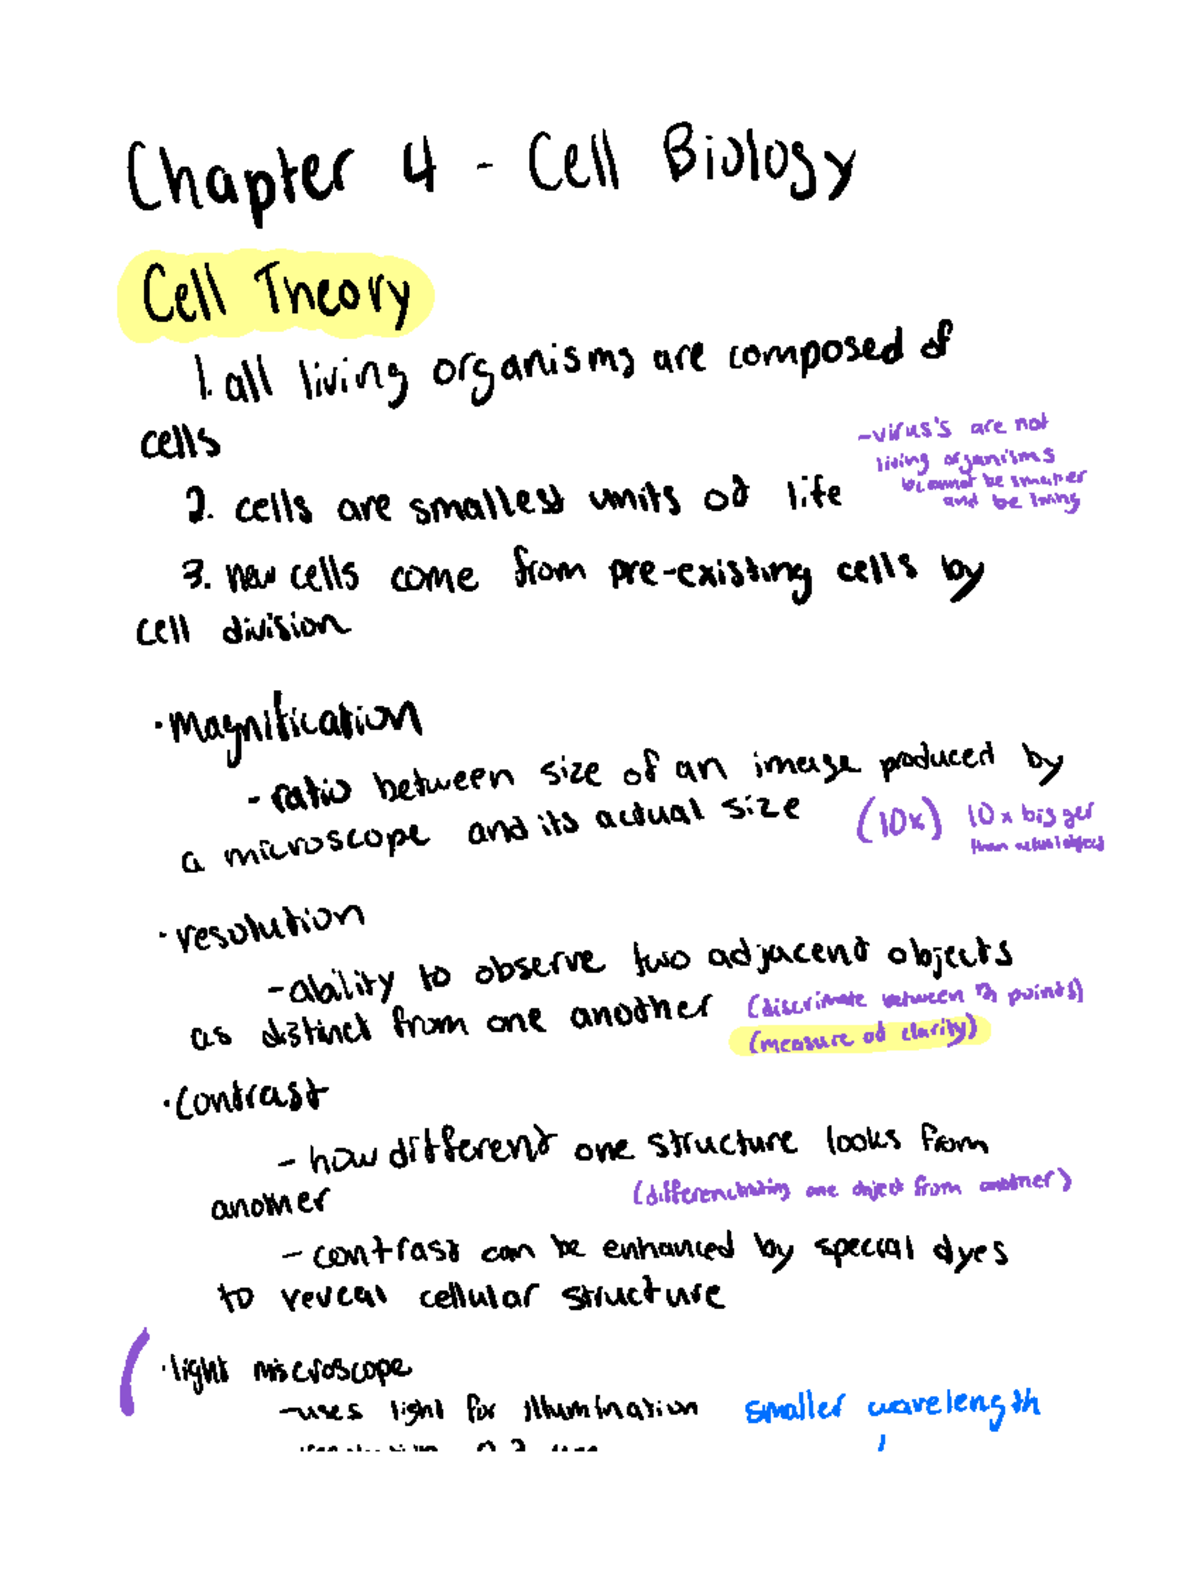 Chapter 4 - Cell Biology
Cell Theory
1. all living organisms are composed of
cells
-virus's are not
living organisms
bc cannot be smaller
and be living
2. cells are smallest units of life
3. new cells come from pre-existing cells by
cell division
·Magnification
- ratio between size of an image produced by
a microscope and its actual size
(10x) 10x bigger
than actual object
·resolution
-ability to observe two adjacent objects
as distinct from one another
(discriminate between points)
(measure of clarity)
·Contrast
- how different one structure looks from
another
(differentiating one object from another)
- contrast can be enhanced by special dyes
to reveal cellular structure
·light microscope
-uses light for illumination smaller wavelength